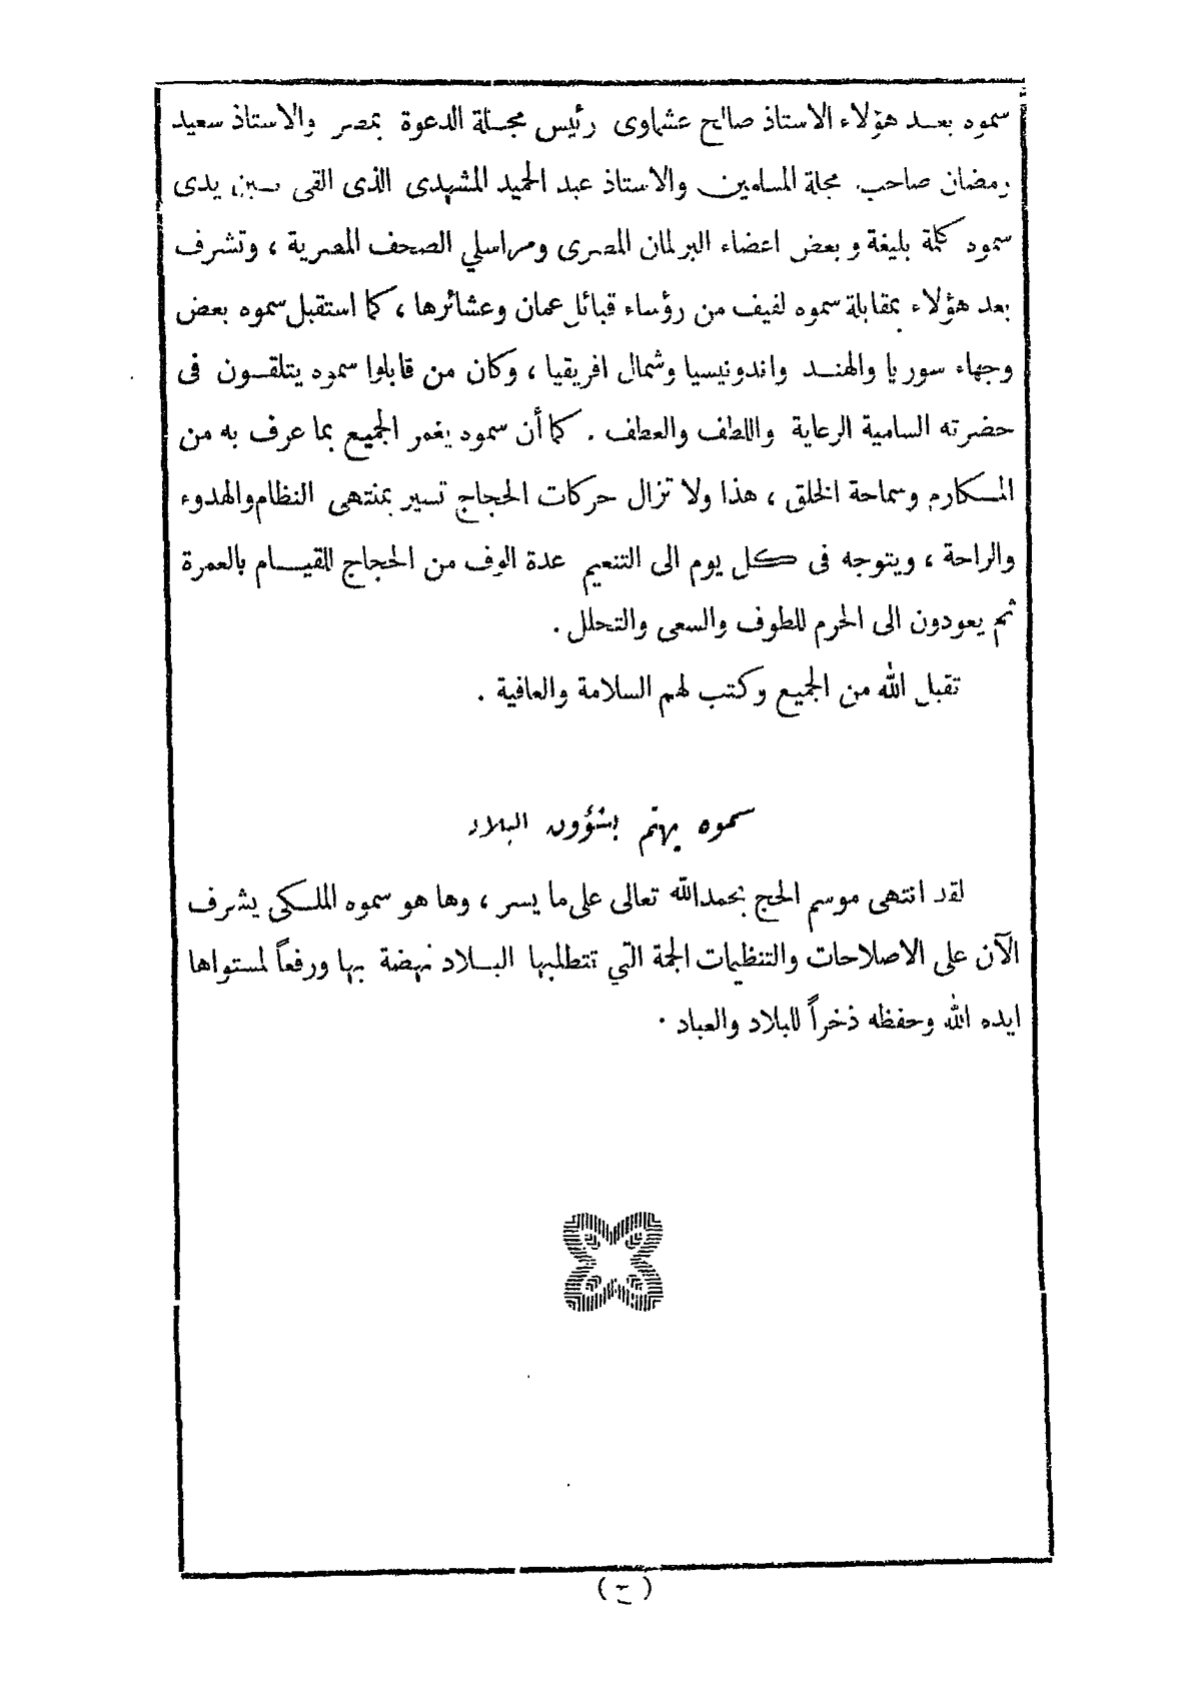 سموه بعد هؤلاء الاستاذ صالح عشماوى رئيس مجلة الدعوة بمصر والاستاذ سعيد
رمضان صاحب مجلة المسلمين والاستاذ عبد الحميد المشهدى الذى القى بين يدى
سموه كلمة بليغة وبعض اعضاء البرلمان المصرى ومراسلي الصحف المصرية ، وتشرف
بعد هؤلاء بمقابلة سموه لفيف من رؤساء قبائل عمان وعشائرها ، كما استقبل سموه بعض
وجهاء سوريا والهند واندونيسيا وشمال افريقيا ، وكان من قابلوا سموه يتلقون فى
حضرته السامية الرعاية واللطف والعطف . كما أن سموه يغمر الجميع بما عرف به من
المكارم وسماحة الخلق ، هذا ولا تزال حركات الحجاج تسير بمنتهى النظام والهدوء
والراحة ، ويتوجه فى كل يوم الى التنعيم عدة الوف من الحجاج للقيام بالعمرة
ثم يعودون الى الحرم للطوف والسعى والتحلل .
تقبل الله من الجميع وكتب لهم السلامة والعافية .
سموه يهتم بشؤون البلاد
لقد انتهى موسم الحج بحمد الله تعالى على ما يسر ، وها هو سموه الملكى يشرف
الآن على الاصلاحات والتنظيمات الجمة التي تتطلبها البلاد نهضة بها ورفعاً لمستواها
ايده الله وحفظه ذخراً للبلاد والعباد .
(ح)